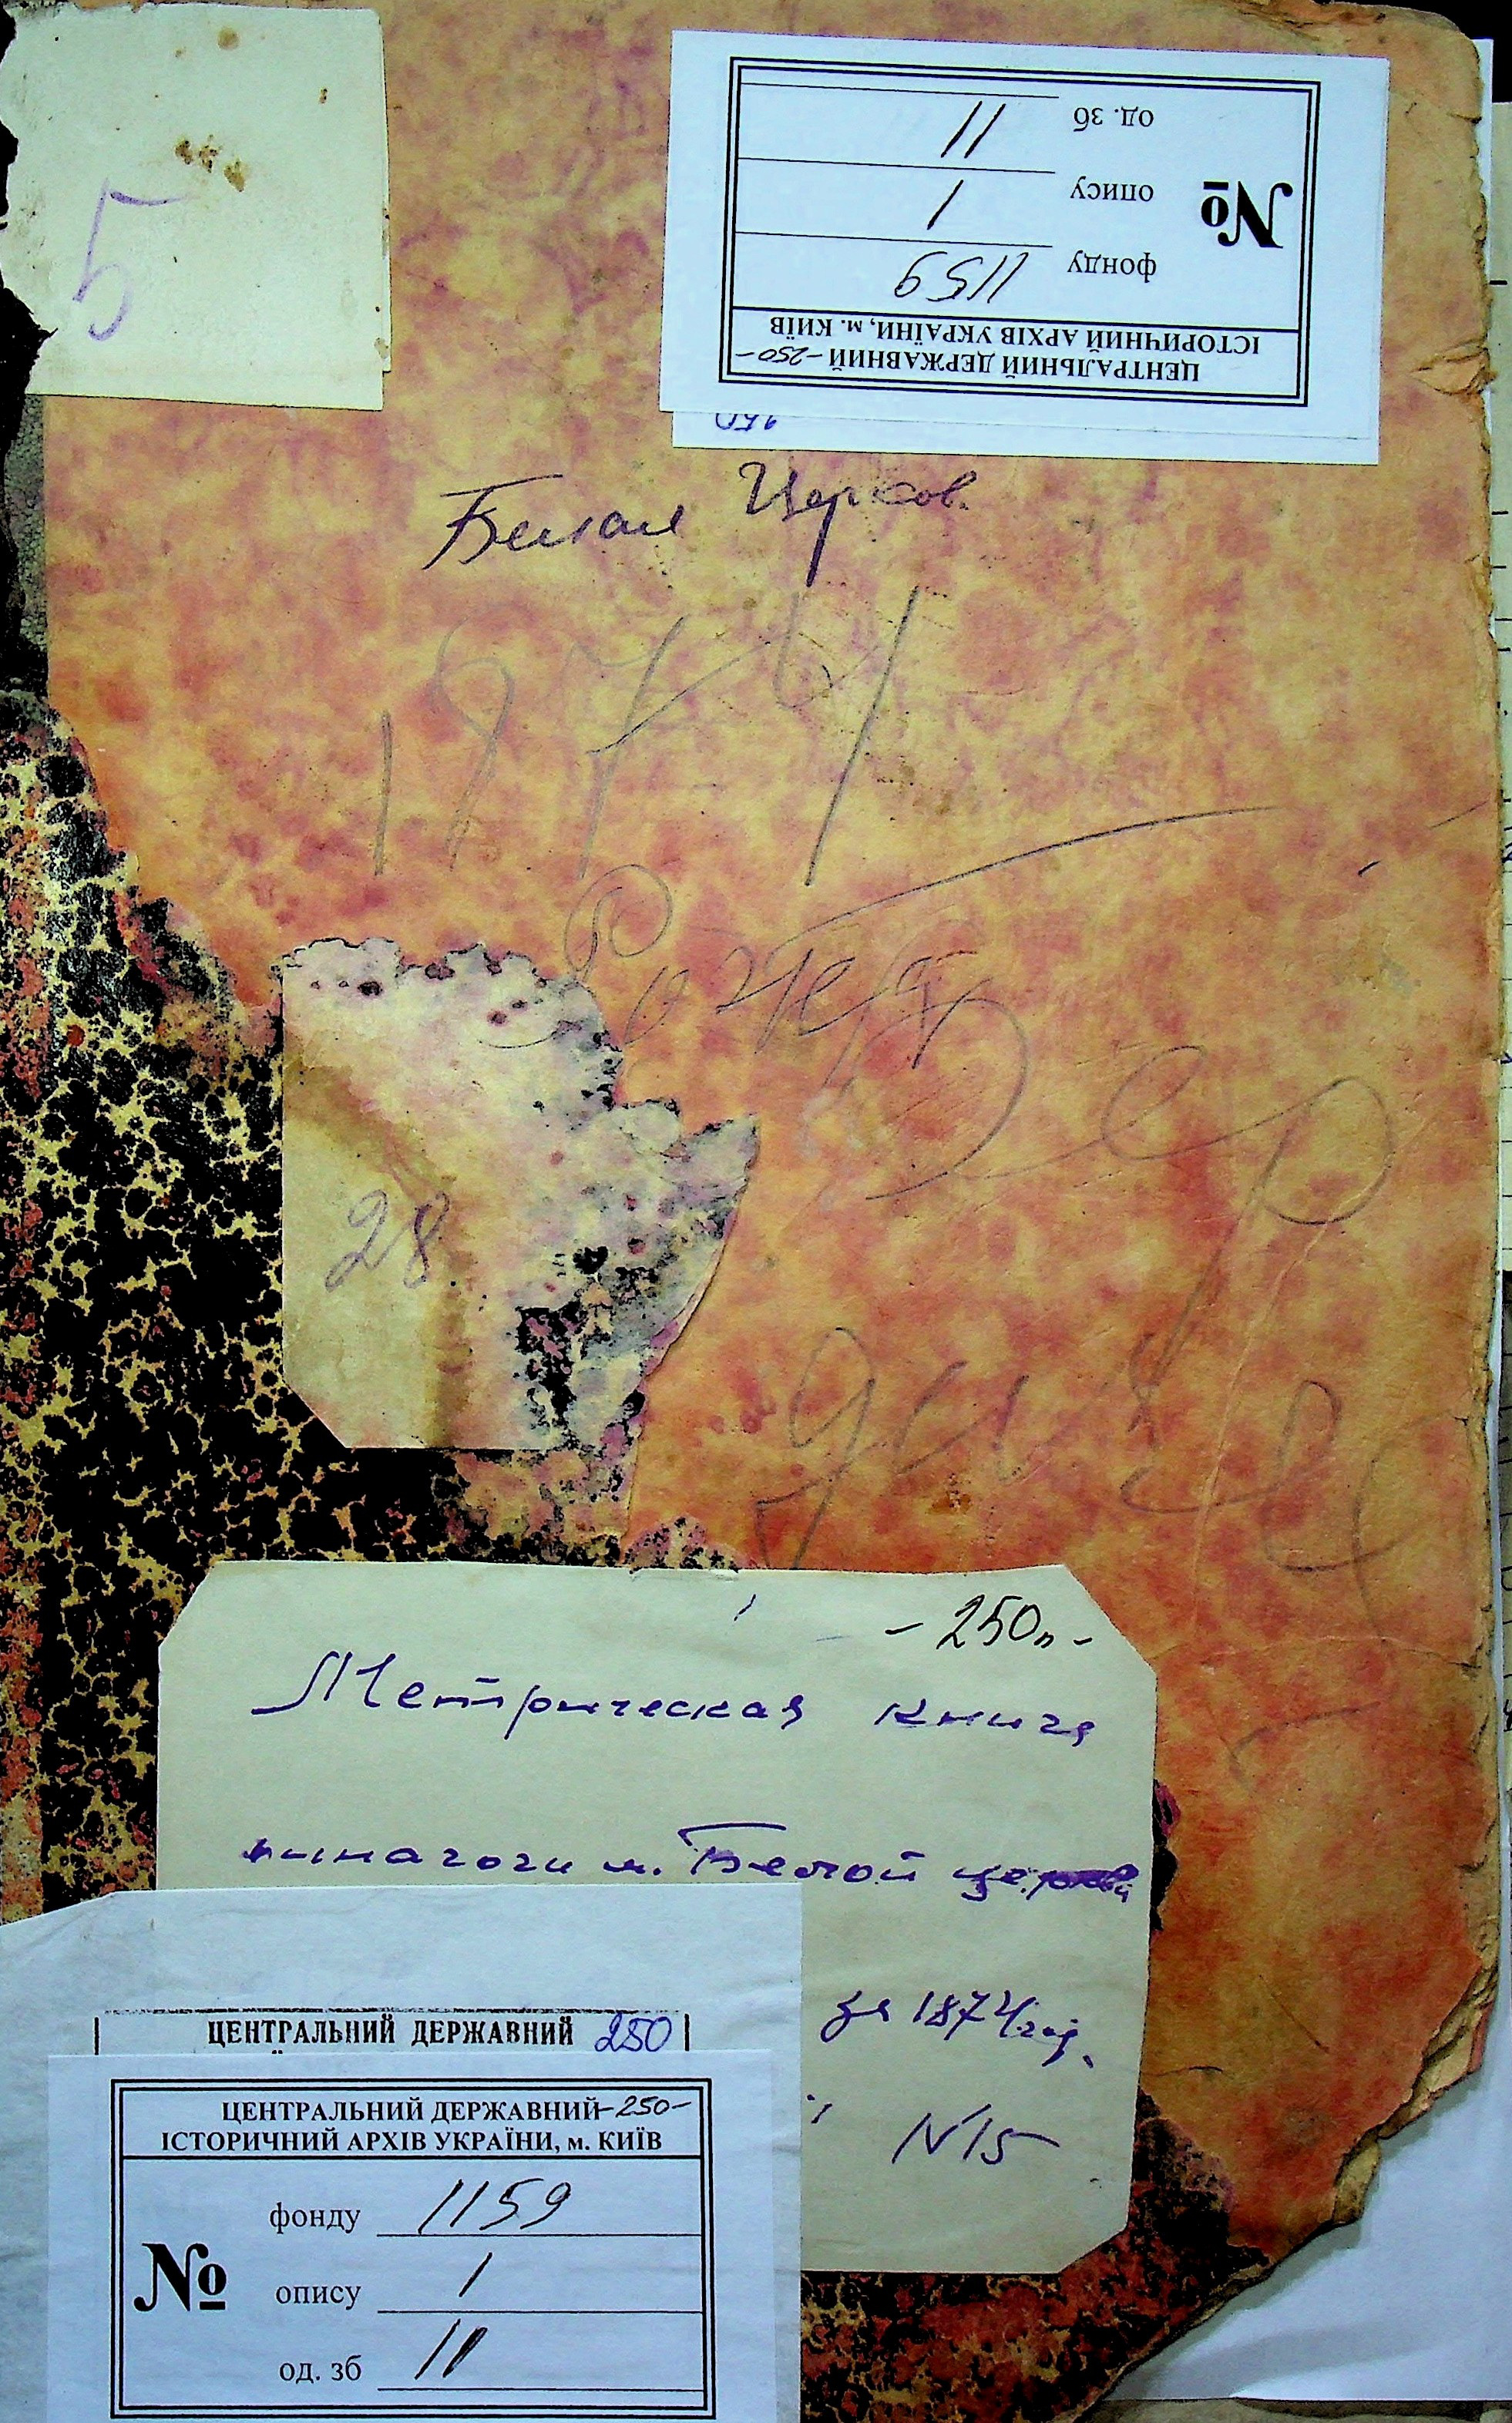 5
од. зб 11
опису 1
№
фонду 1159
ЦЕНТРАЛЬНИЙ ДЕРЖАВНИЙ -250-
ІСТОРИЧНИЙ АРХІВ УКРАЇНИ, м. КИЇВ
Белая Церков.
1874
28
-250л-
Метрическая книга
синагоги м. Белой церкви
за 1874 год.
N15
ЦЕНТРАЛЬНИЙ ДЕРЖАВНИЙ 250
ЦЕНТРАЛЬНИЙ ДЕРЖАВНИЙ -250-
ІСТОРИЧНИЙ АРХІВ УКРАЇНИ, м. КИЇВ
фонду 1159
№
опису 1
од. зб 11